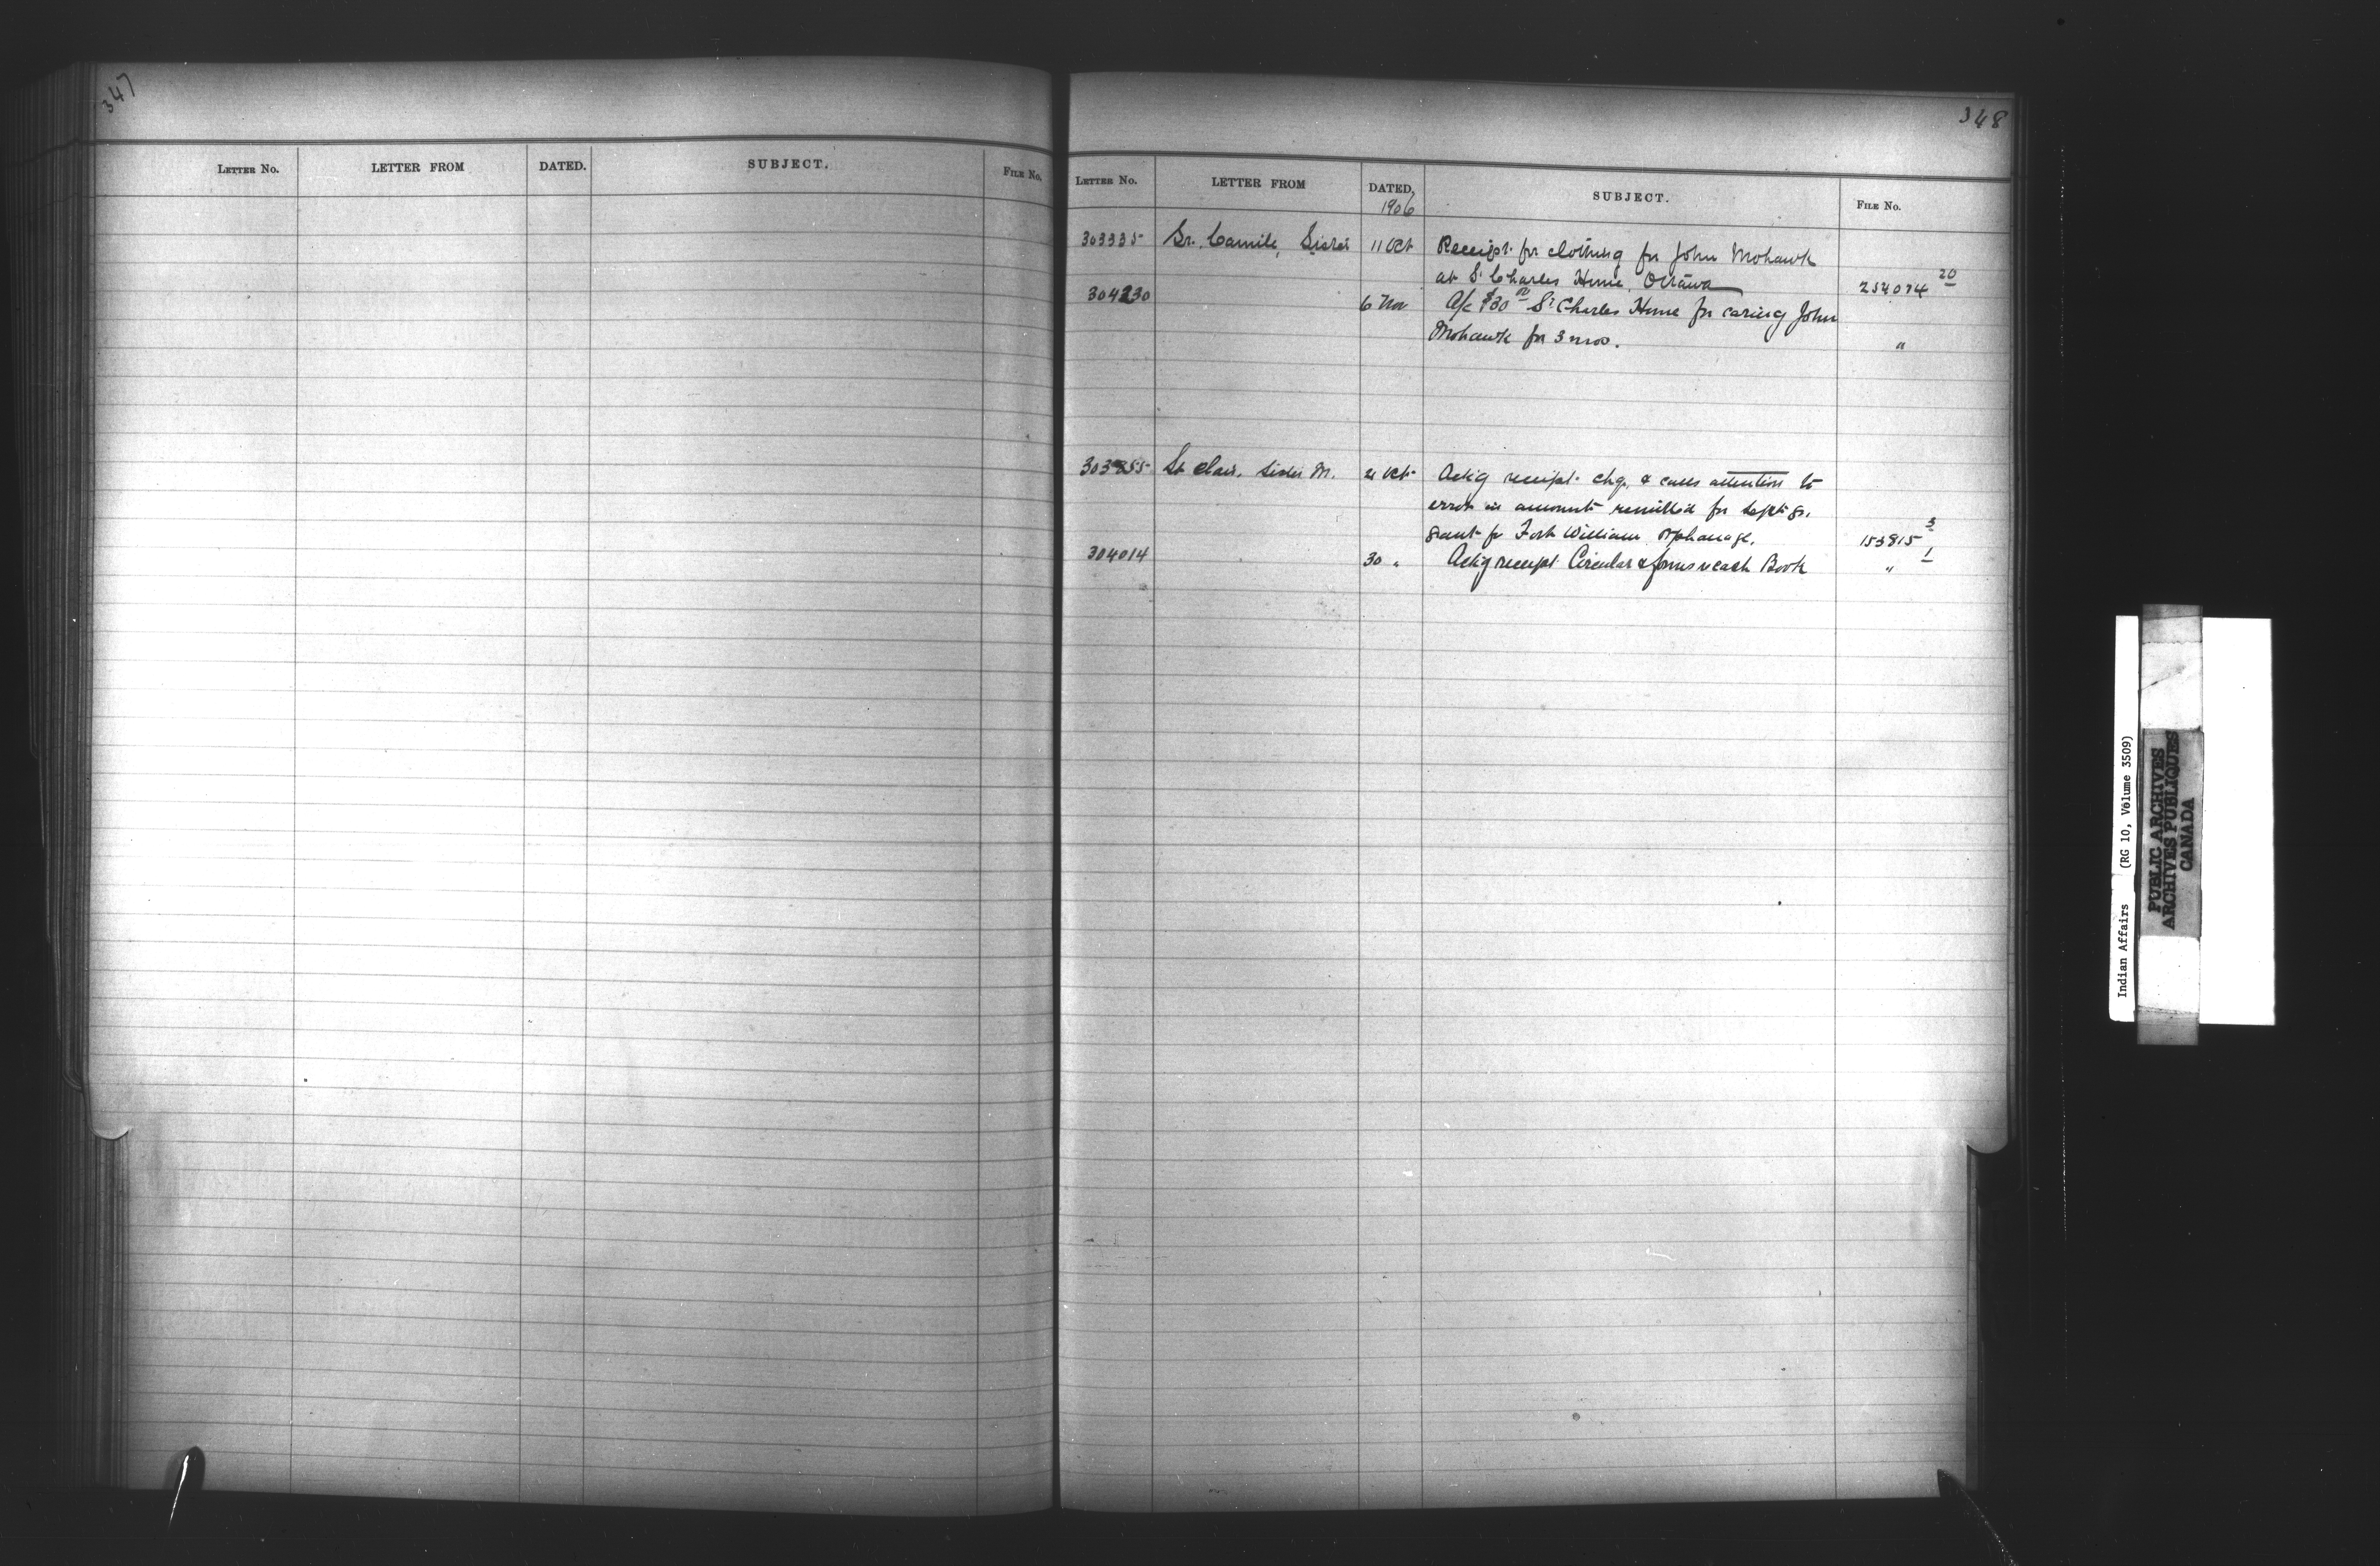 347
LETTER No. LETTER FROM DATED. SUBJECT. FILE No.
348
LETTER No. LETTER FROM DATED, SUBJECT. FILE No.
1906
303335 Sr. Camile, Sister 11 Oct Receipt for clothing for John Mohawk
at St Charles Home, Ottawa 254074 20
304230 6 Nov A/c $30 00 St Charles Home for caring John
Mohawk for 3 mos. "
303855 St Clair, Sister M. Oct Ackg receipt chq. & calls attention to
error in amount remitted for Sept qr.
grant for Fort William Orphanage. 153815 3
304014 30 " Ackg receipt Circular & forms re cash Book " 1
Indian Affairs (RG 10, Volume 3509)
PUBLIC ARCHIVES
ARCHIVES PUBLIQUES
CANADA